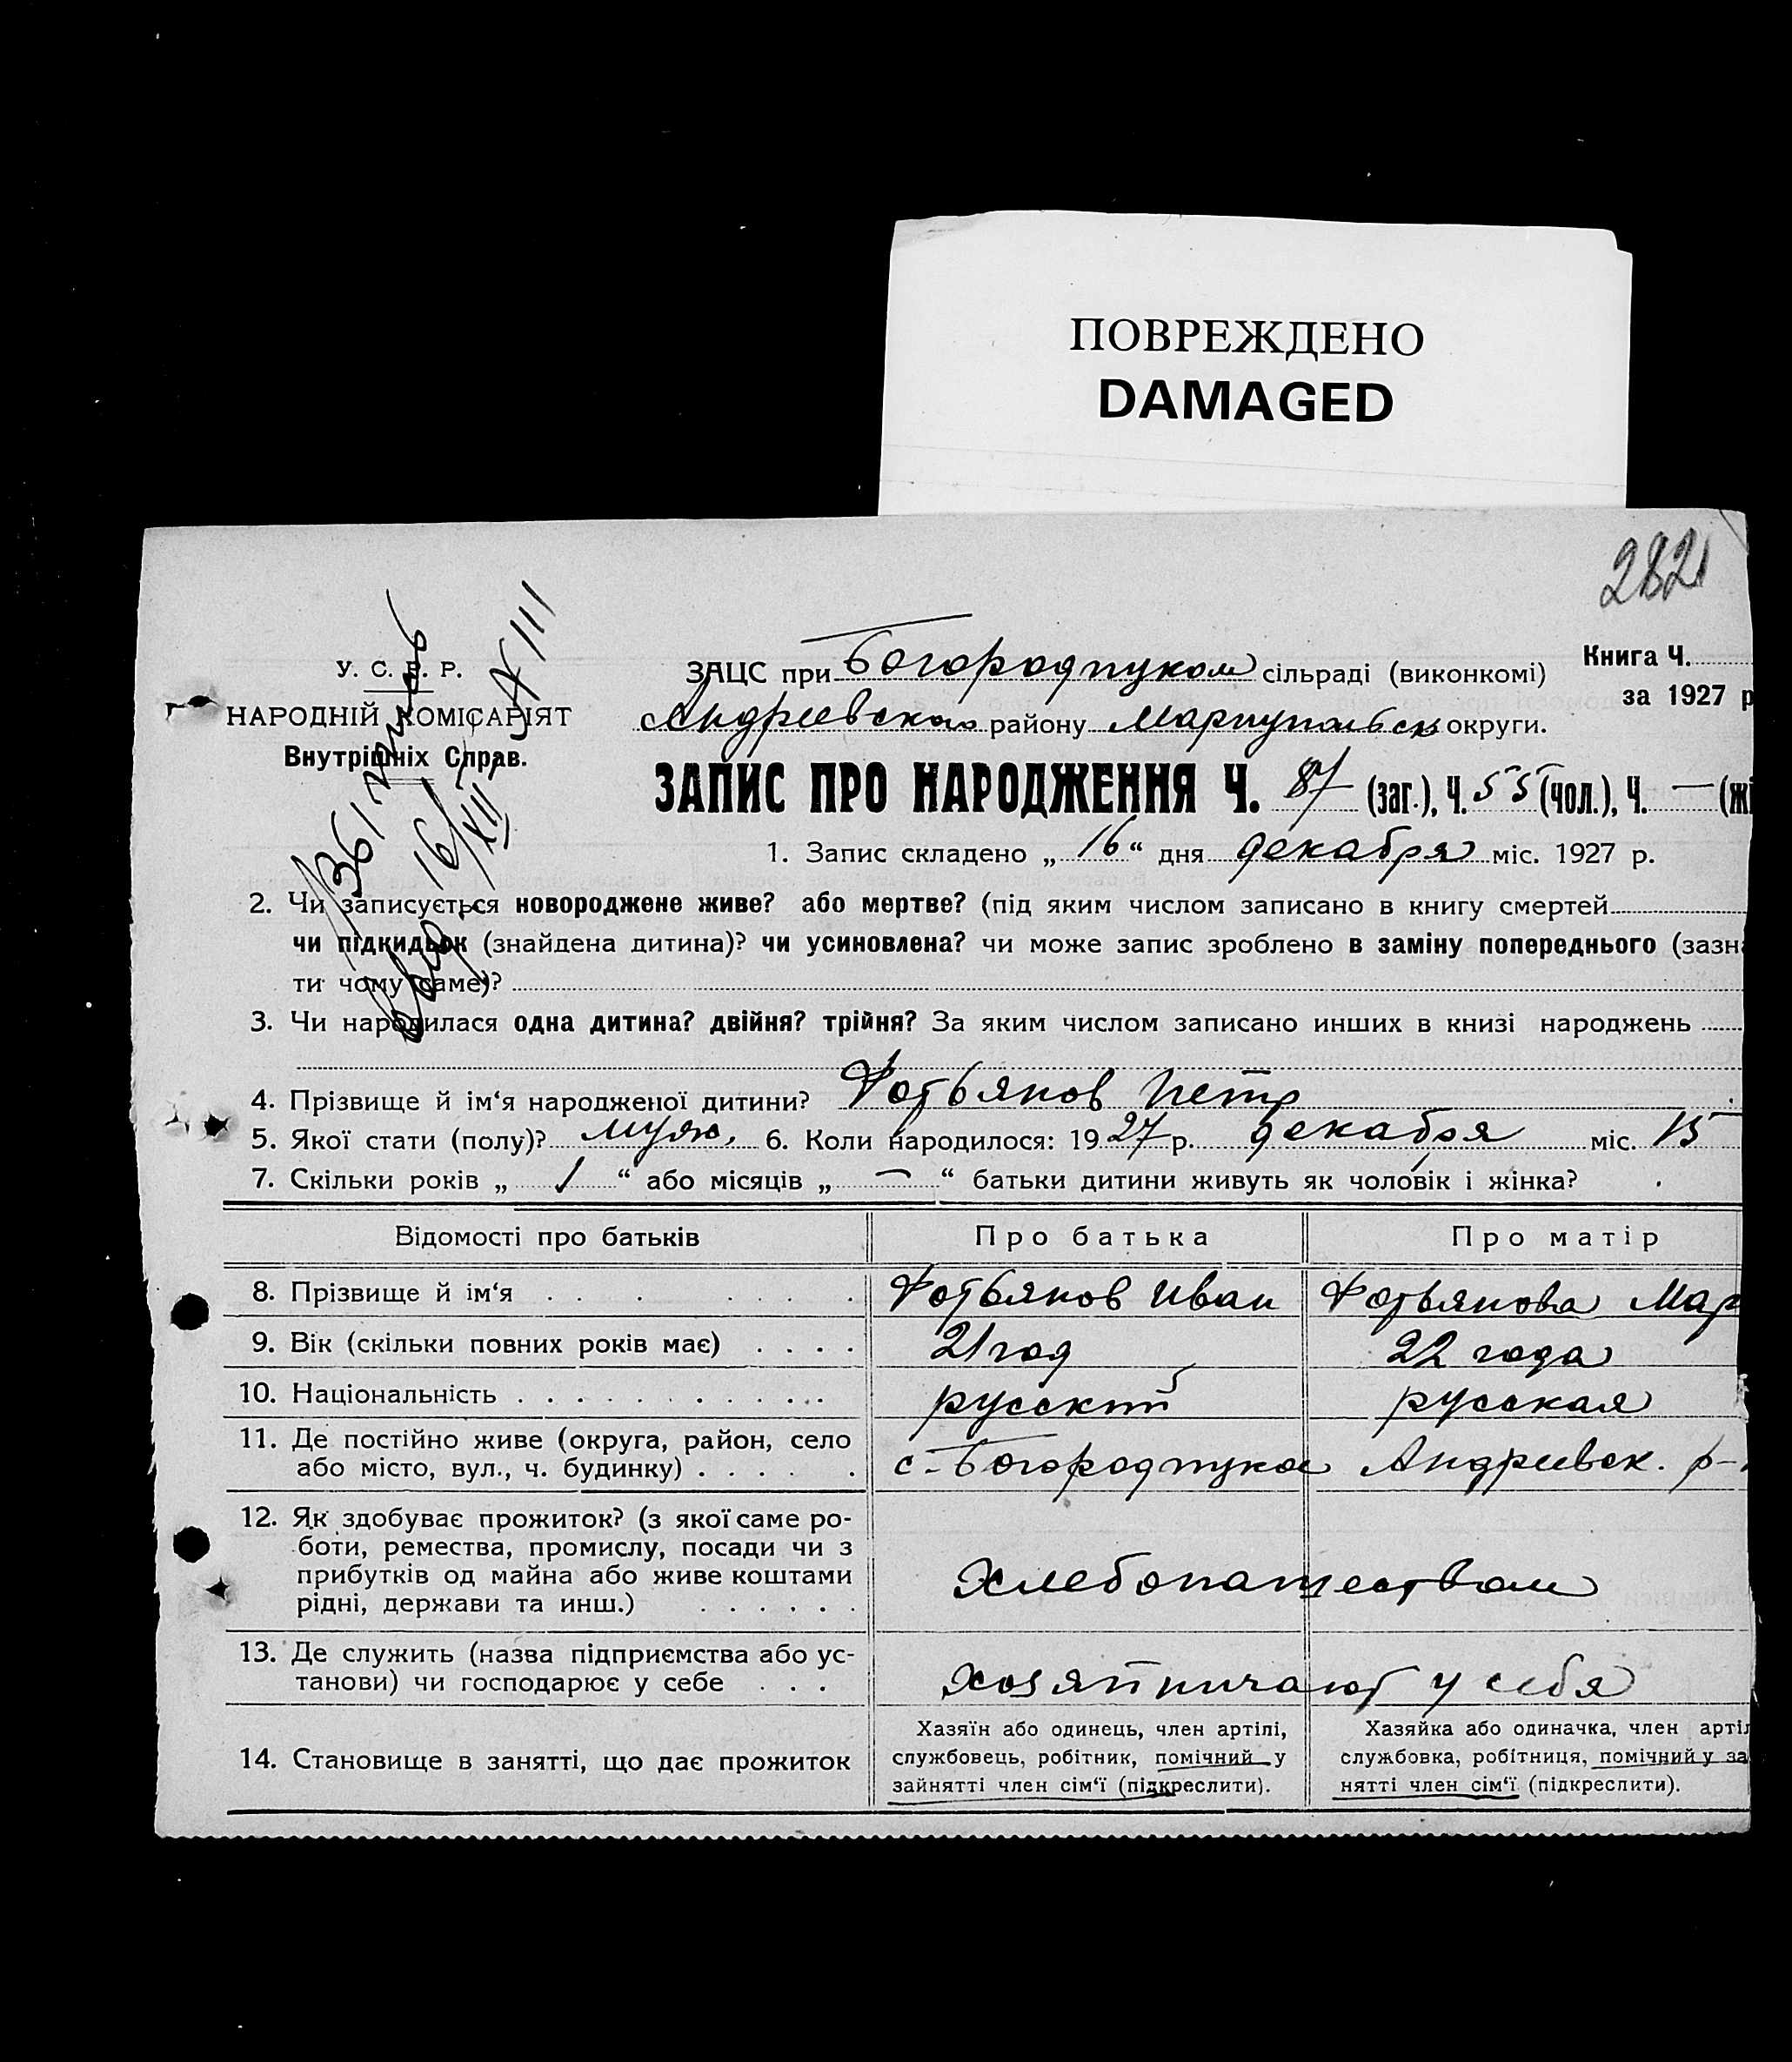 ПОВРЕЖДЕНО
DAMAGED
2821
У. С. Р. Р.
НАРОДНІЙ КОМІСАРІЯТ
Внутрішніх Справ.
16/XII
№ 111
ЗАЦС при Богородицком сільраді (виконкомі)
Книга Ч.
за 1927 р
Андреевского району Мариупольск округи.
ЗАПИС ПРО НАРОДЖЕННЯ Ч. 87 (заг.), Ч. 55 (чол.), Ч. — (жі
1. Запис складено „ 16 “ дня декабря міс. 1927 р.
2. Чи записується новороджене живе? або мертве? (під яким числом записано в книгу смертей
чи підкидьок (знайдена дитина)? чи усиновлена? чи може запис зроблено в заміну попереднього (зазна
ти чому саме)?
3. Чи народилася одна дитина? двійня? трійня? За яким числом записано инших в книзі народжень
4. Прізвище й ім‘я народженої дитини? Фотьянов Петр
5. Якої стати (полу)? муж. 6. Коли народилося: 1927 р. декабря міс. 15
7. Скільки років „ 1 “ або місяців „ — “ батьки дитини живуть як чоловік і жінка?
Відомості про батьків Про батька Про матір
8. Прізвище й ім‘я . . . . . . . Фотьянов Иван Фотьянова Мар
9. Вік (скільки повних років має) . . . . 21 год 22 года
10. Національність . . . . . . . . . . . русский русская
11. Де постійно живе (округа, район, село
або місто, вул., ч. будинку) . . . . . с-Богородицкое Андреевск. р-
12. Як здобуває прожиток? (з якої саме ро-
боти, ремества, промислу, посади чи з
прибутків од майна або живе коштами
рідні, держави та инш.) . . . . . .
Хлебопашеством
13. Де служить (назва підприємства або ус-
танови) чи господарює у себе . . .
хозяйничают у себя
14. Становище в занятті, що дає прожиток
Хазяїн або одинець, член артілі,
службовець, робітник, помічний у
зайнятті член сім‘ї (підкреслити).
Хазяйка або одиначка, член артіл
службовка, робітниця, помічний у за
нятті член сім‘ї (підкреслити).